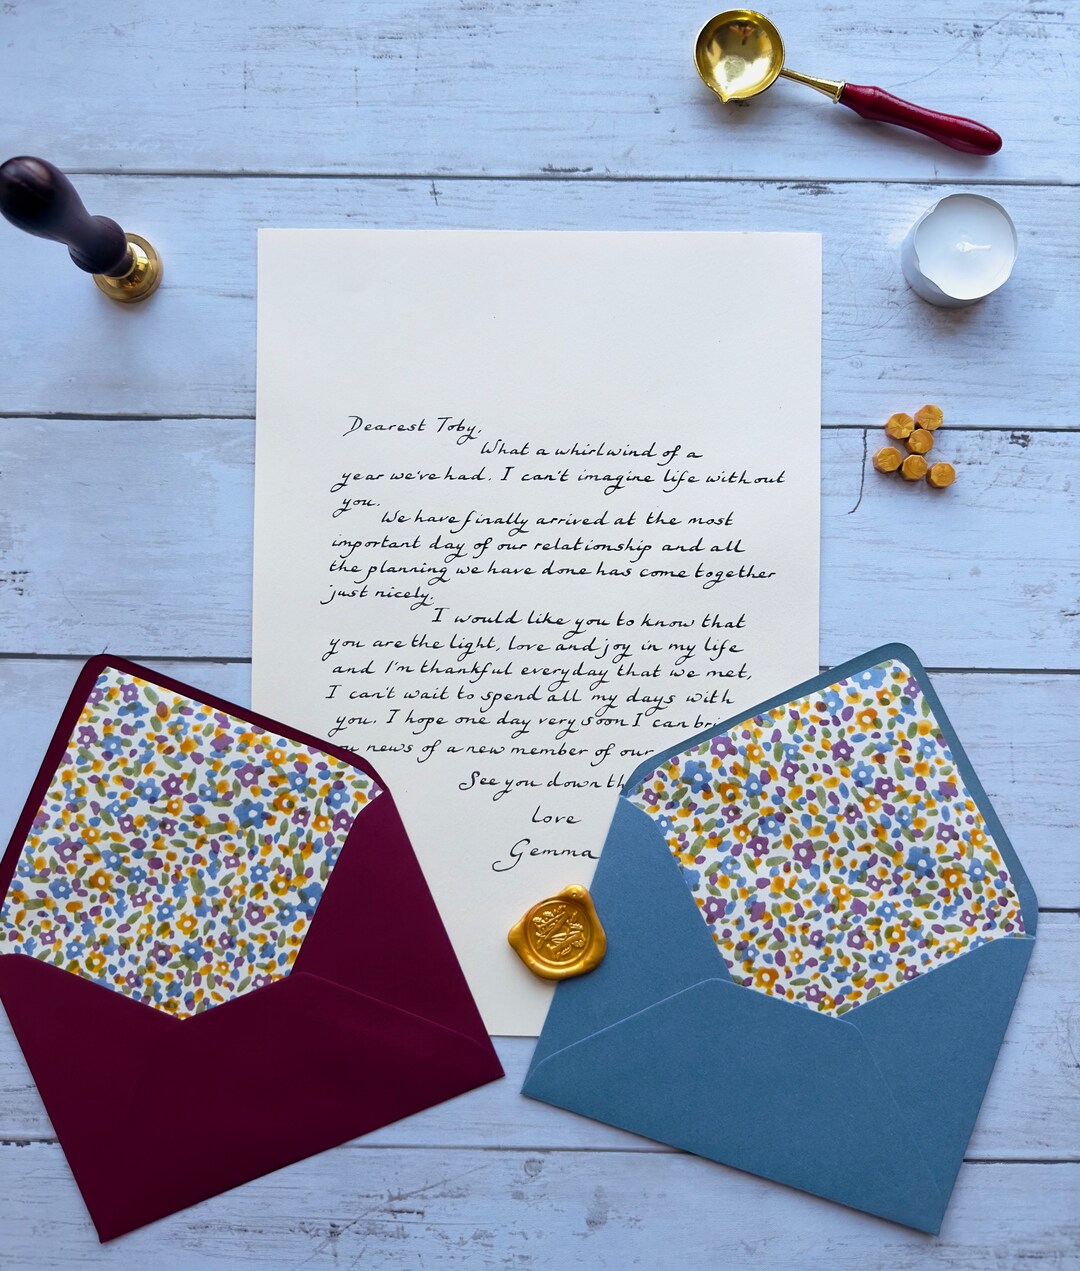 Dearest Toby,
What a whirlwind of a
year we've had. I can't imagine life without
you.
We have finally arrived at the most
important day of our relationship and all
the planning we have done has come together
just nicely.
I would like you to know that
you are the light, love and joy in my life
and I'm thankful everyday that we met,
I can't wait to spend all my days with
you. I hope one day very soon I can
news of a new member of our
See you down
love
Gemma